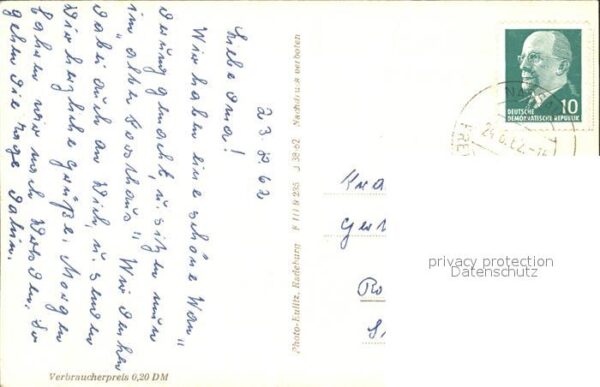 23.8.62
Liebe Oma!
Wir haben eine schöne Wan„
derung gemacht, u. sitzen nun
im „alten Forsthaus". Wir denken
dabei auch an Dich, u. senden
Dir herzliche Grüße. Morgen
fahren wir nach Dresden. So
gehen die Tage dahin.
Verbraucherpreis 0,20 DM
Photo-Eulitz, Radeburg F III B 235 J 38/62 Nachdruck verboten
DEUTSCHE
DEMOKRATISCHE REPUBLIK
10
privacy protection
Datenschutz